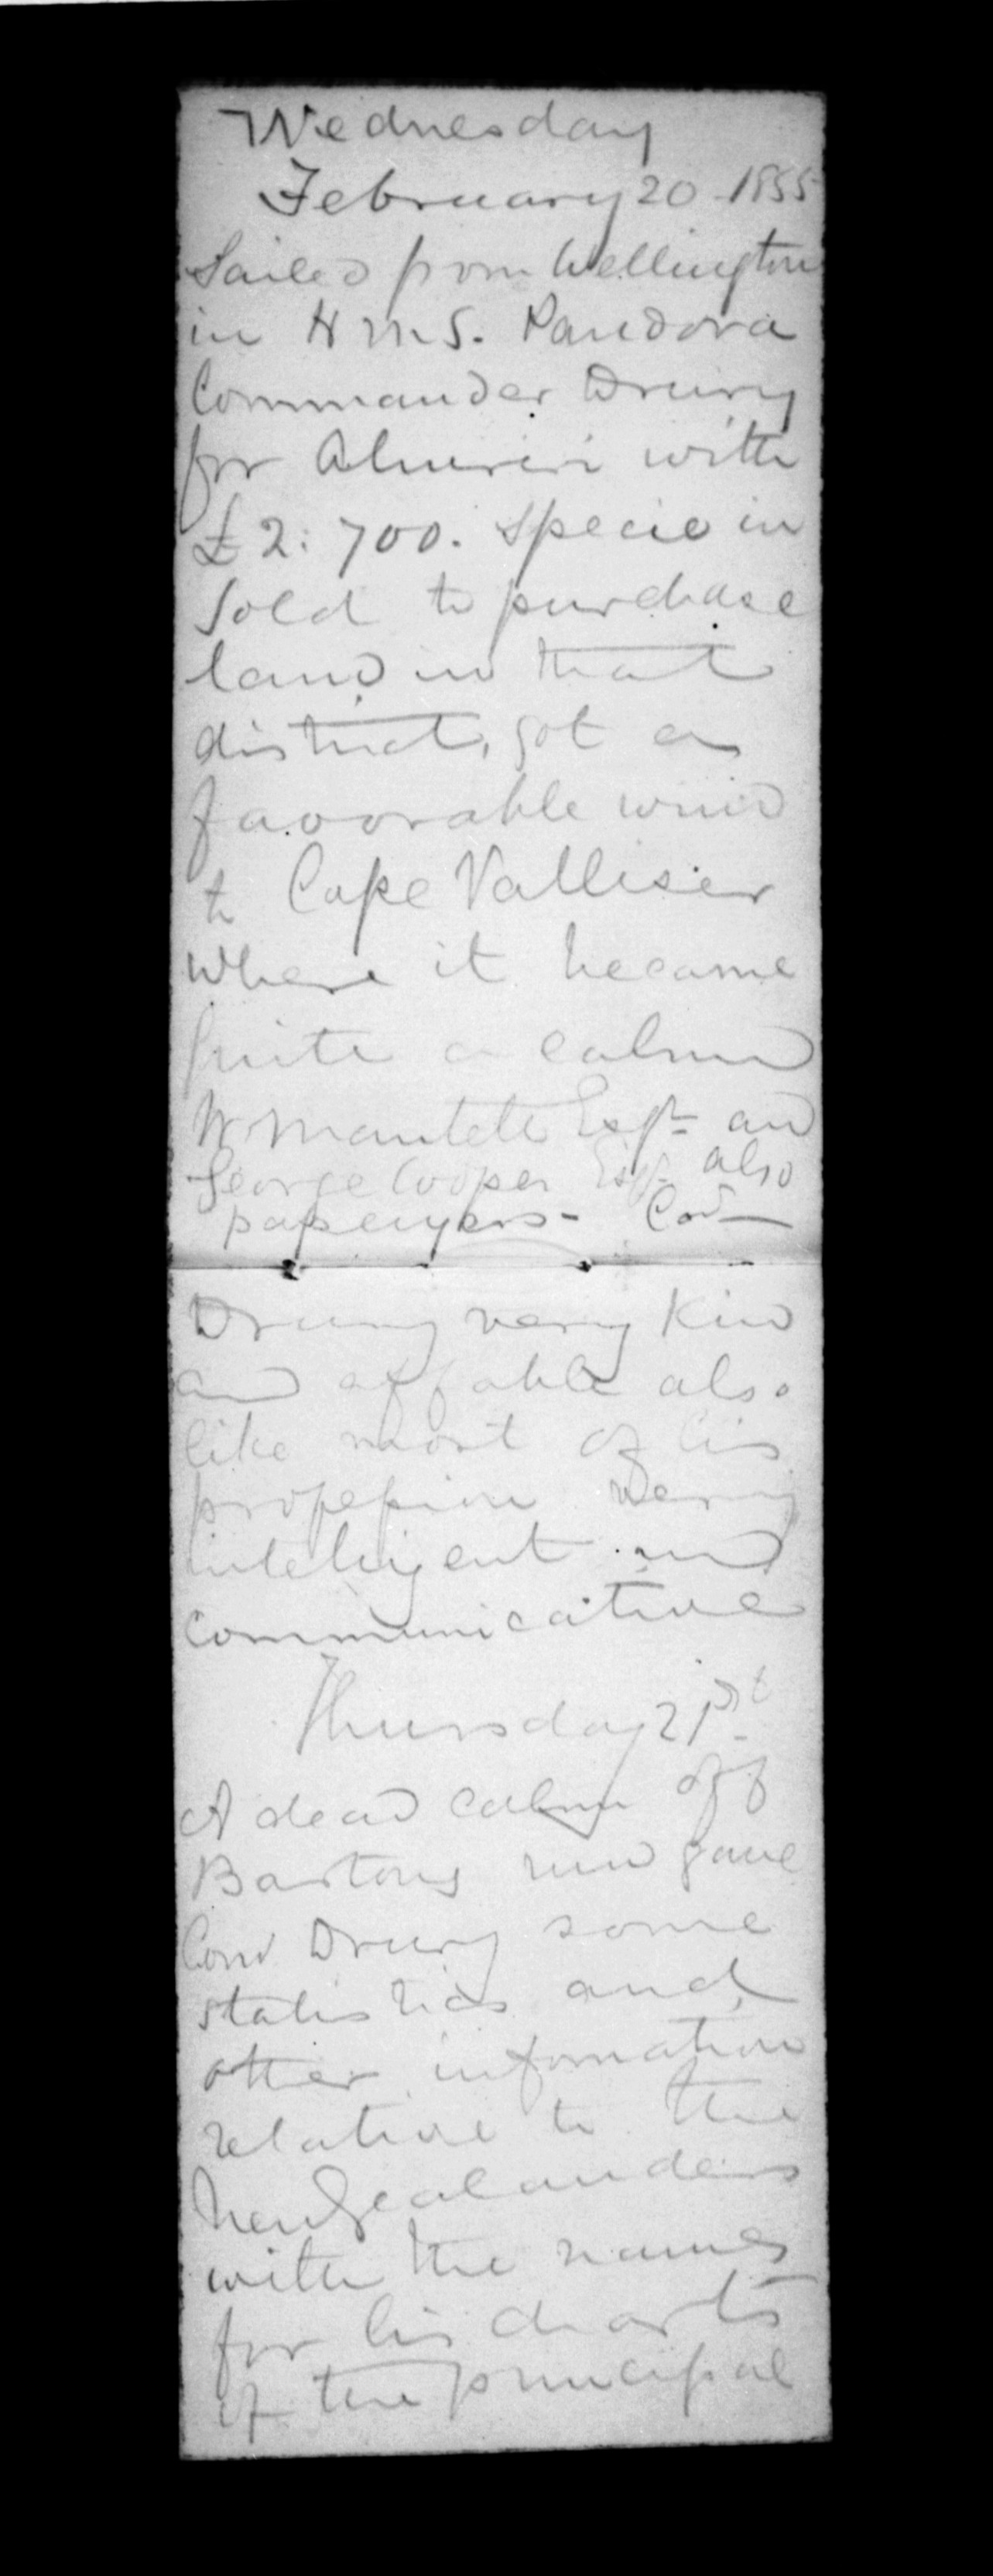 Wednesday
February 20 - 1855
Sailed from Wellington
in H M S. Pandora
Commander Drury
for Ahuriri with
£2:700. Specie in
Gold to purchase
land in that
district, got a
favorable wind
to Cape Palliser
where it became
quite a calm
W Mantell Esqr and
George Cooper Esq. also
passengers - Com
Drury very kind
and affable also
like most of his
profession very
intelligent and
communicative
Thursday 21st
A dead calm off
Bartons run gave
Com Drury some
statistics and
other information
relative to the
New Zealanders
with the names
for his charts
of the principal